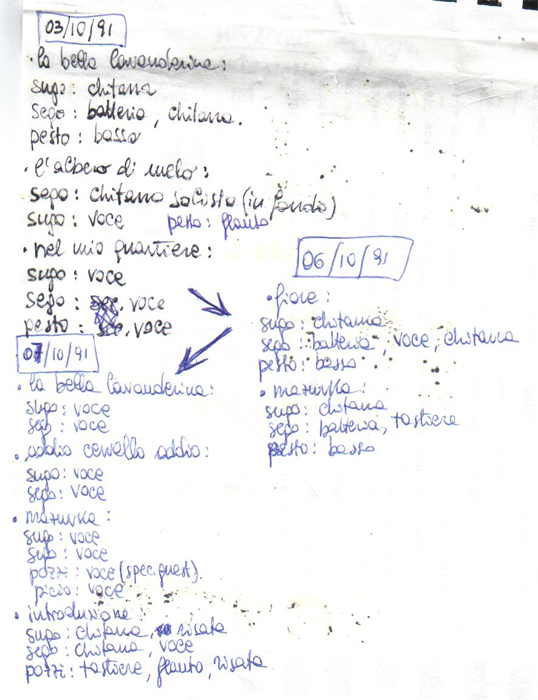 03/10/91
• la bella lavanderina:
sugo: chitarra
sego: batteria, chitarra.
pesto: basso
• l'albero di melo:
sego: chitarra solista (in fondo)
sugo: voce pesto: flauto
• nel mio quartiere:
sugo: voce
sego: voce
pesto: voce
06/10/91
• fiore:
sugo: chitarra
sego: batteria, voce, chitarra
pesto: basso
• mazurka:
sugo: chitarra
sego: batteria, tastiere
pesto: basso
07/10/91
• la bella lavanderina:
sugo: voce
sego: voce
• addio cervello addio:
sugo: voce
sego: voce
• mazurka:
sugo: voce
sego: voce
pozzi: voce (spec. guest).
picio: voce
• introduzione:
sugo: chitarra, risata
sego: chitarra, voce
pozzi: tastiere, flauto, risata